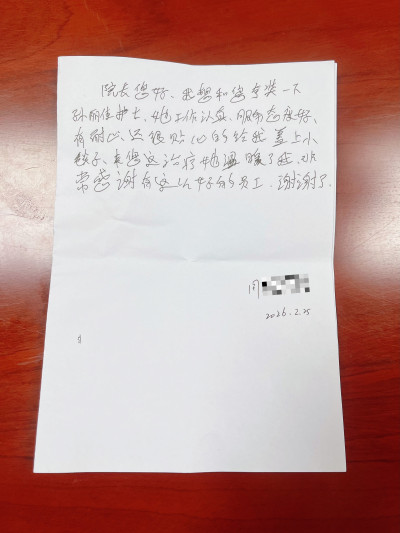 院长您好、我想和您夸奖一下
孙丽佳护士、她工作认真、服务态度好、
有耐心、还很贴心的给我盖上小
被子、来您这治疗她温暖了我、非
常感谢有这么好的员工、谢谢了.
周
2026.2.25